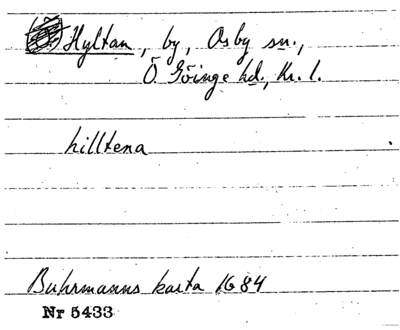 Hyltan, by, Osby sn.,
Ö Göinge hd., Kr. l.
hilltena
Buhrmanns karta 1684
Nr 5433